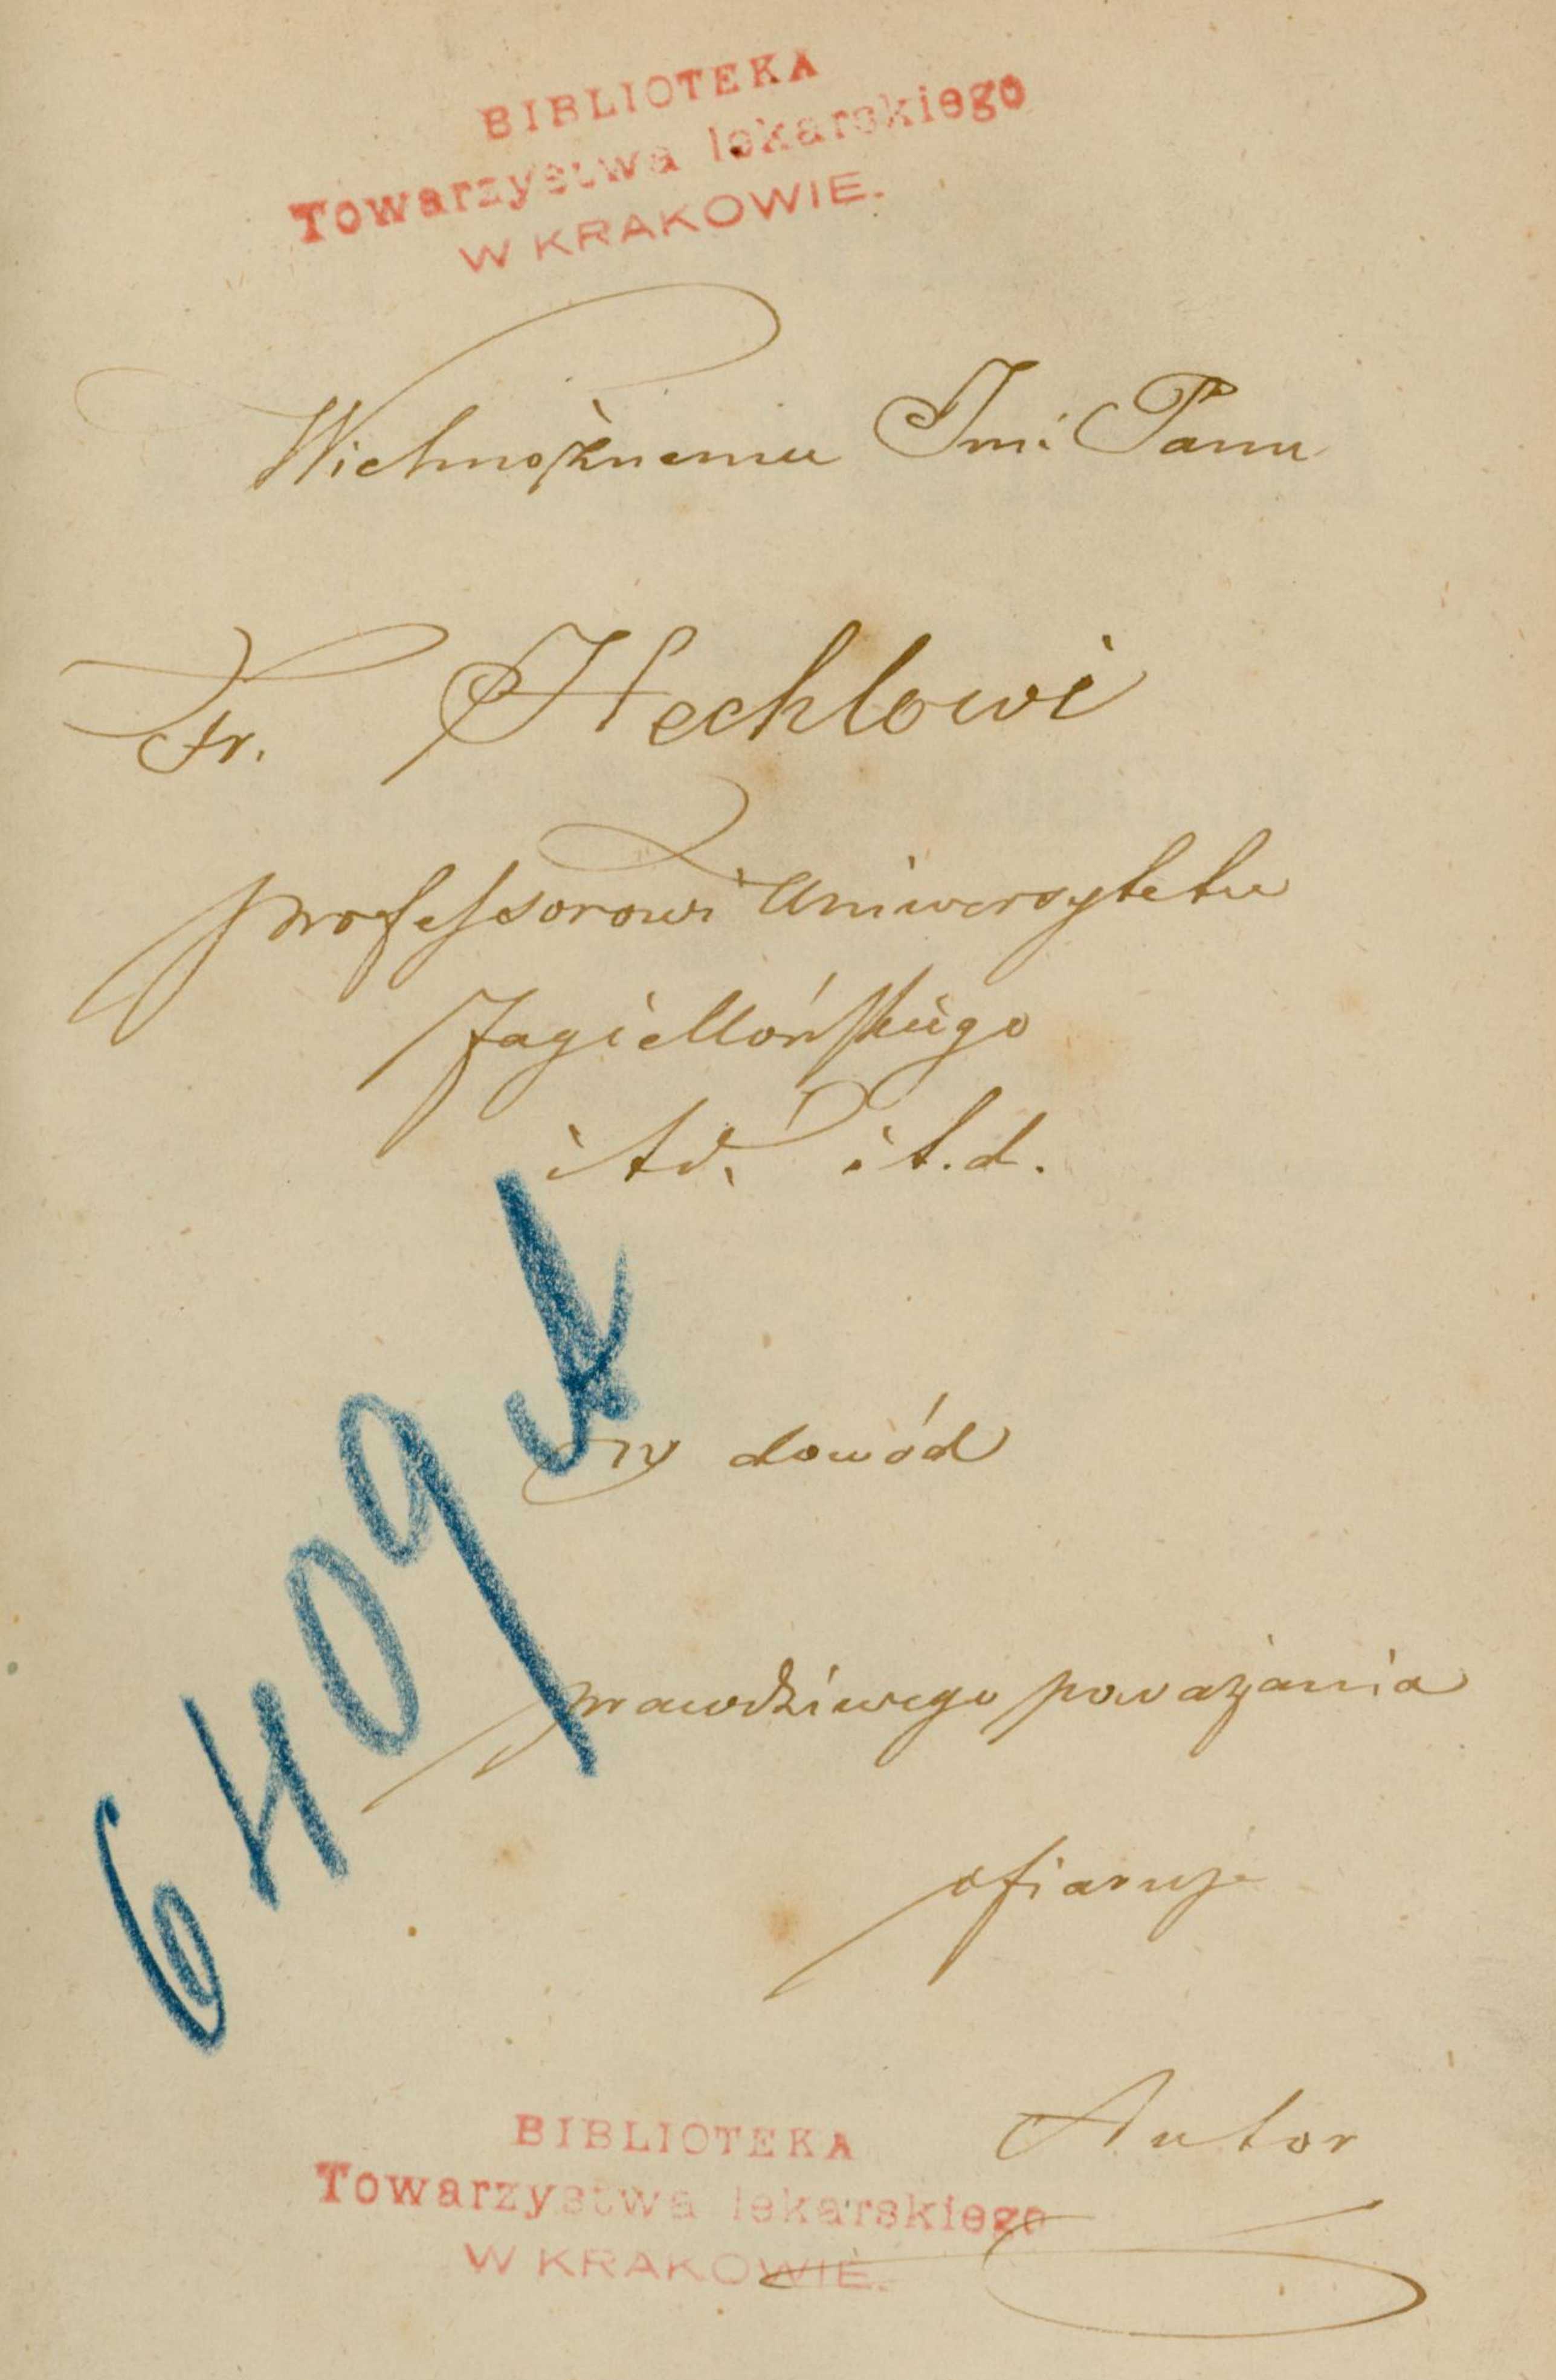 BIBLIOTEKA
Towarzystwa lekarskiego
W KRAKOWIE.
Wielmożnemu Jmć Panu
Fr. Hechlowi
professorowi Uniwersytetu
Jagiellońskiego
itd. i t.d.
w dowód
prawdziwego poważania
ofiaruje
Autor
6409
BIBLIOTEKA
Towarzystwa lekarskiego
W KRAKOWIE.